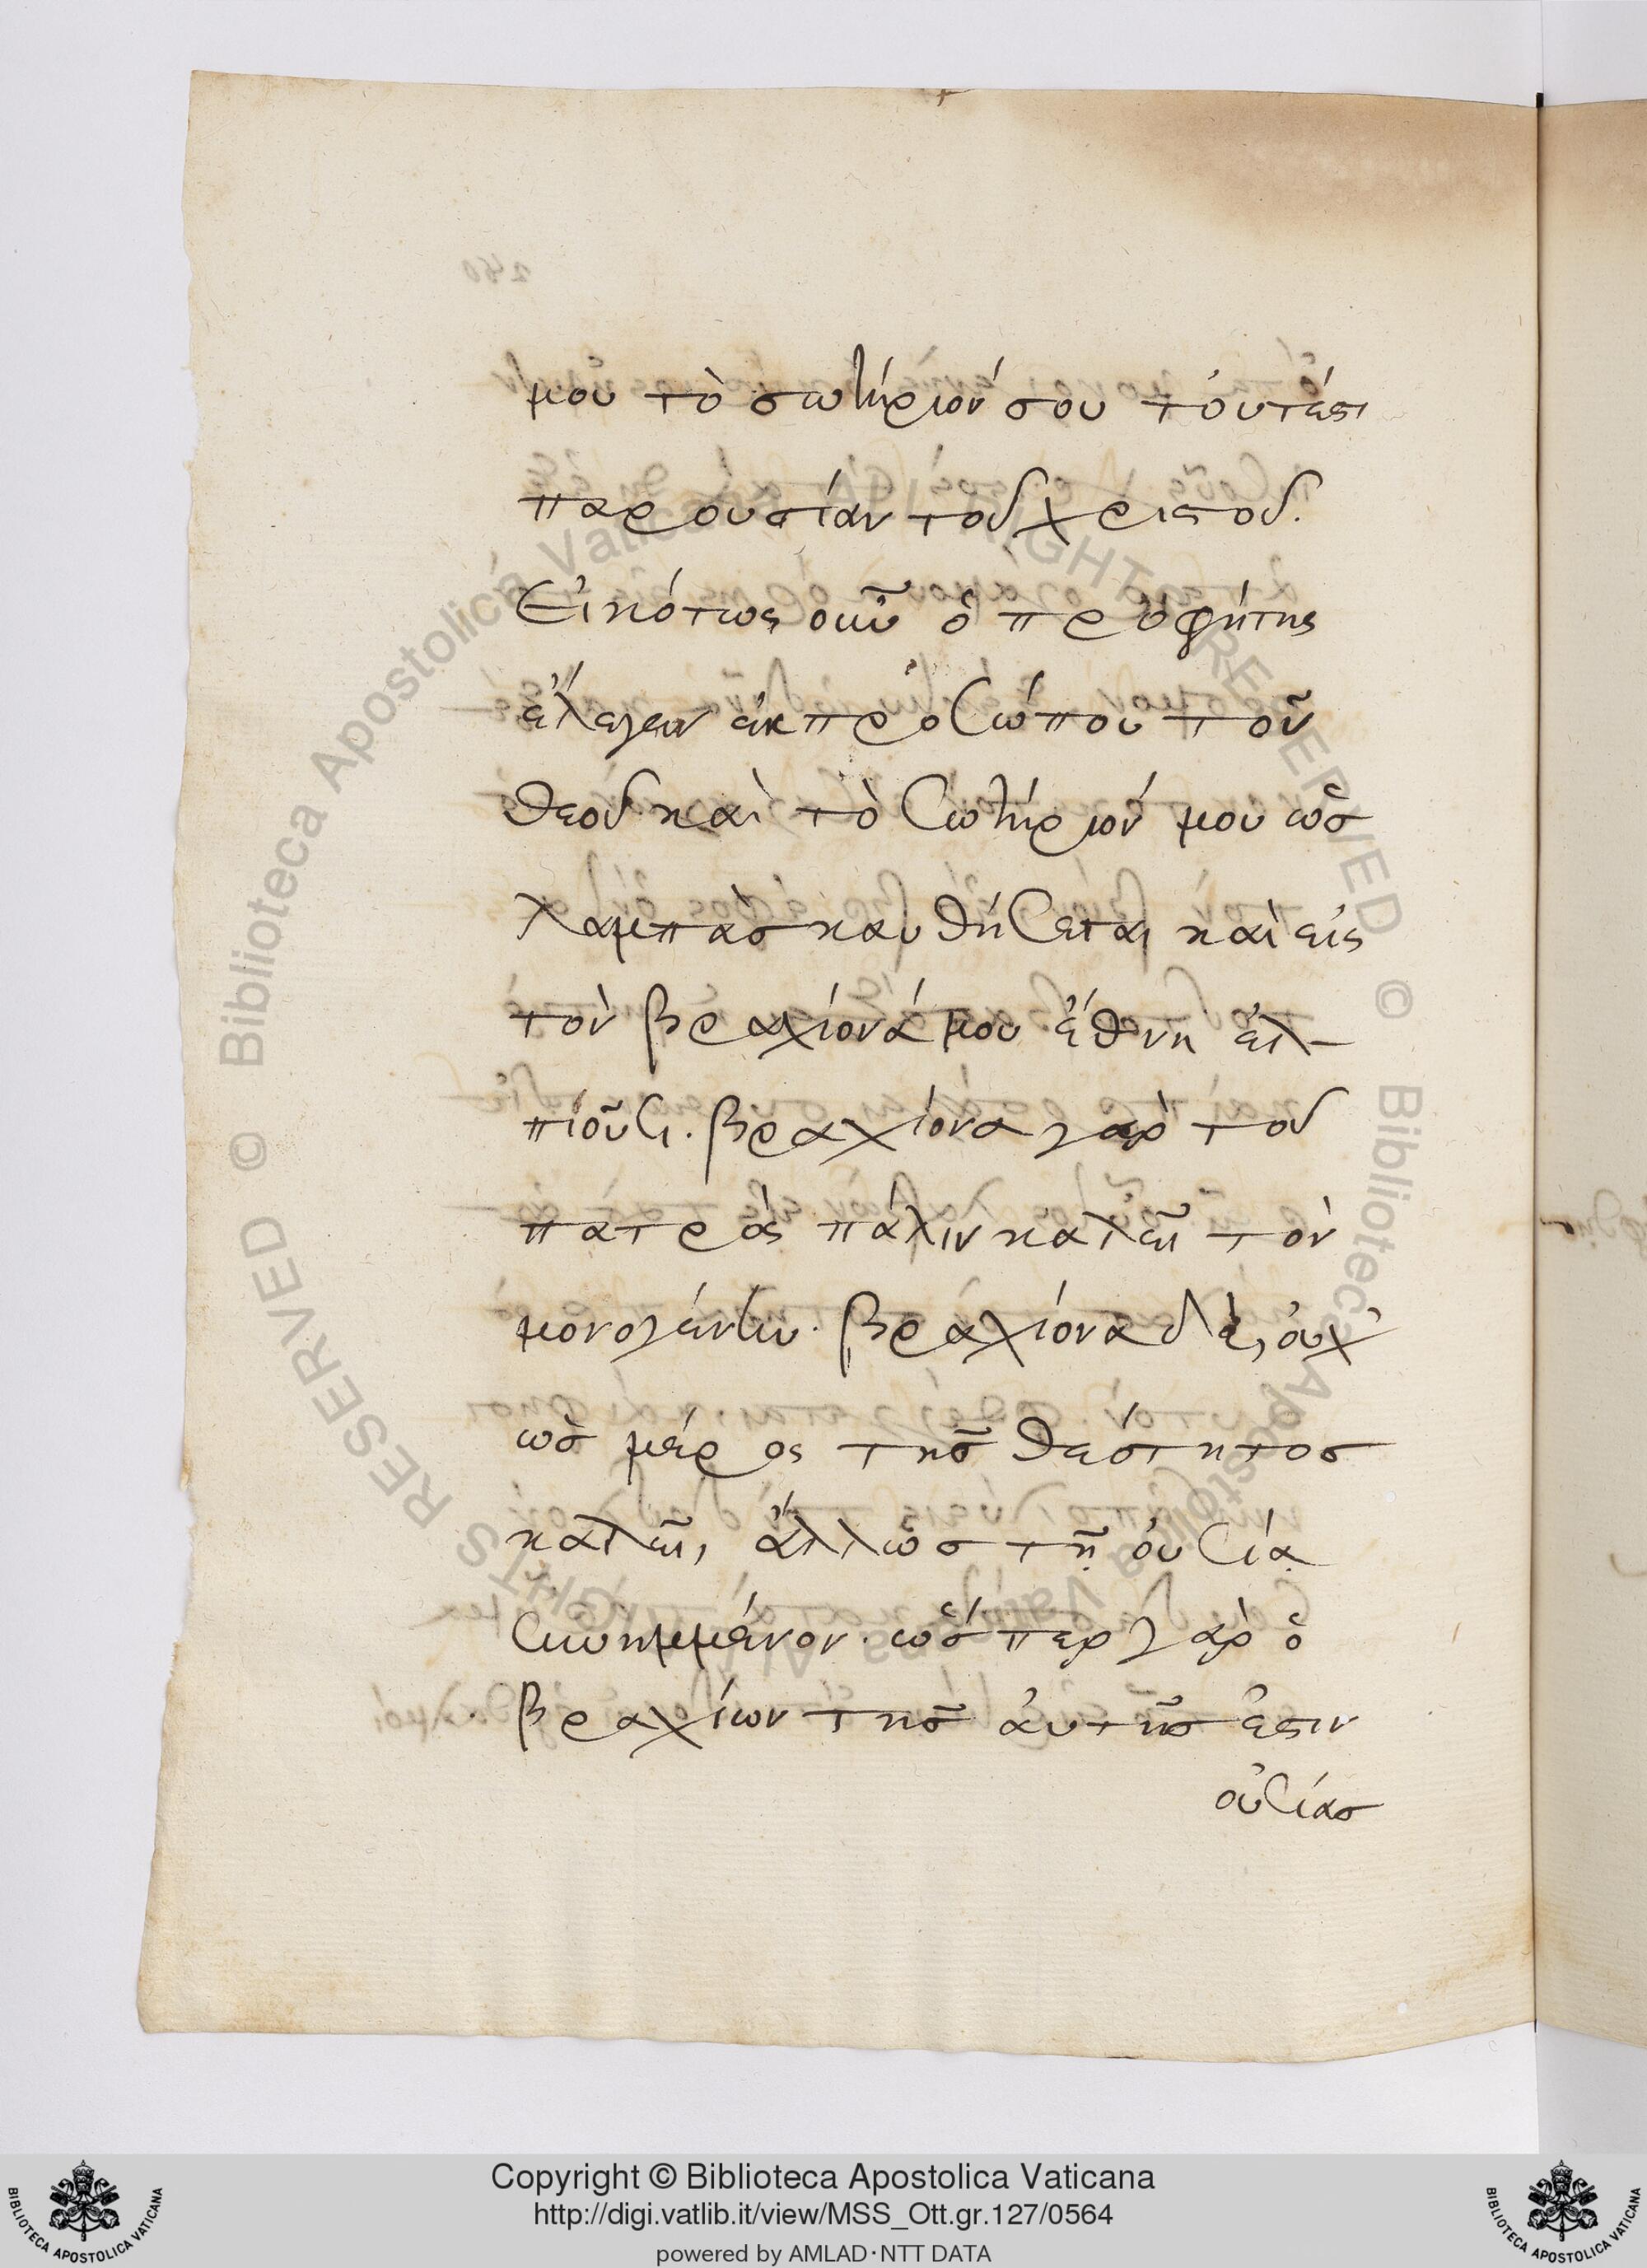 μου τὸ σωτήριόν σου τουτέστι
παρουσίαν τοῦ χριστοῦ.
Εἰκότως οὖν ὁ προφήτης
ἔλεγεν ἐκ προσώπου τοῦ
θεοῦ καὶ τὸ σωτήριόν μου ὡς
λαμπὰς καυθήσεται καὶ εἰς
τὸν βραχίονά μου ἔθνη ἐλ-
πιοῦσι. βραχίονα γὰρ τοῦ
πατρός πάλιν καλεῖ τὸν
μονογενῆ. βραχίονα δὲ, οὐχ
ὡς μέρος τῆς θεότητος
καλεῖ, ἀλλ' ὡς τῇ οὐσίᾳ
συνημμένον. ὥσπερ γὰρ ὁ
βραχίων τῆς αὐτῆς ἐστιν
οὐσίας
Copyright © Biblioteca Apostolica Vaticana
http://digi.vatlib.it/view/MSS_Ott.gr.127/0564
powered by AMLAD·NTT DATA
BIBLIOTECA APOSTOLICA VATICANA
BIBLIOTECA APOSTOLICA VATICANA